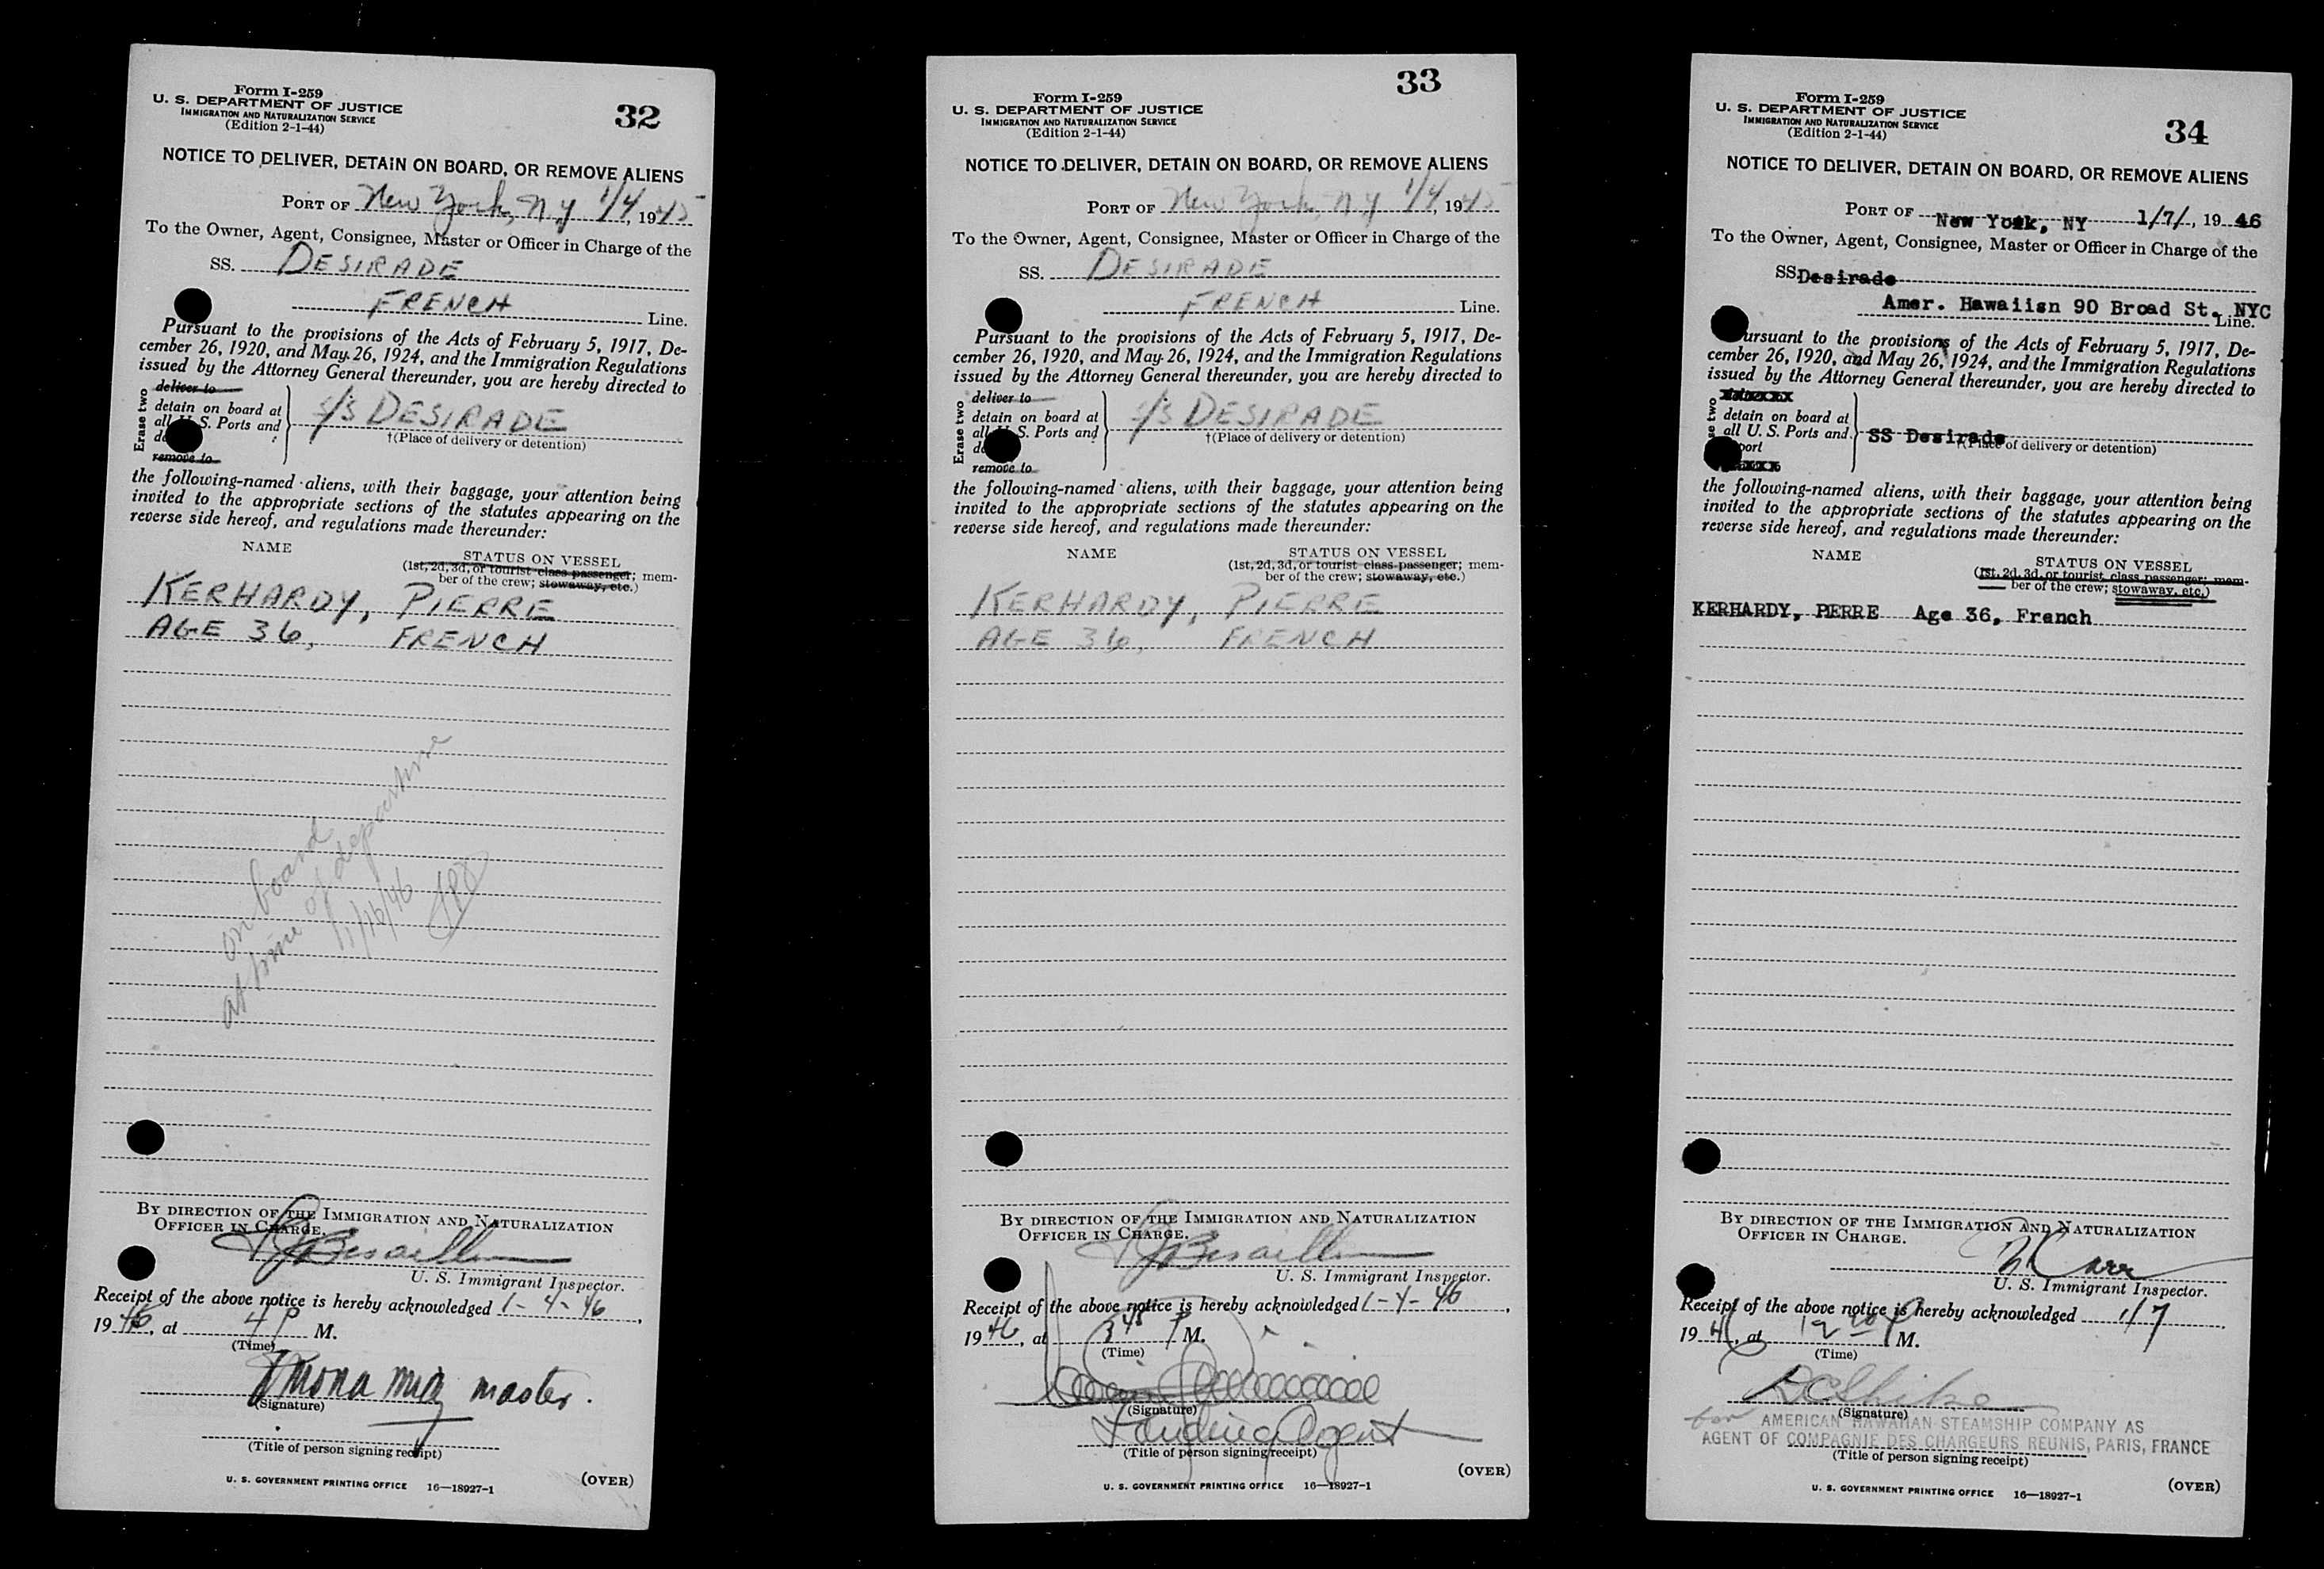 Form I-259
U. S. DEPARTMENT OF JUSTICE
IMMIGRATION AND NATURALIZATION SERVICE
(Edition 2-1-44)
32
NOTICE TO DELIVER, DETAIN ON BOARD, OR REMOVE ALIENS
PORT OF New York, N.Y 1/4, 1945
To the Owner, Agent, Consignee, Master or Officer in Charge of the
SS. DESIRADE
FRENCH Line.
Pursuant to the provisions of the Acts of February 5, 1917, De-
cember 26, 1920, and May 26, 1924, and the Immigration Regulations
issued by the Attorney General thereunder, you are hereby directed to
Erase two
deliver to
detain on board at
all U. S. Ports and
remove to
S/S DESIRADE
†(Place of delivery or detention)
the following-named aliens, with their baggage, your attention being
invited to the appropriate sections of the statutes appearing on the
reverse side hereof, and regulations made thereunder:
NAME STATUS ON VESSEL
(1st, 2d, 3d, or tourist class passenger; mem-
ber of the crew; stowaway, etc.)
KERHARDY, PIERRE
AGE 36, FRENCH
on board
at time of departure
1/16/46
BY DIRECTION OF THE IMMIGRATION AND NATURALIZATION
OFFICER IN CHARGE.
U. S. Immigrant Inspector.
Receipt of the above notice is hereby acknowledged 1-4-46,
1946, at 4 P M.
(Time)
master.
(Signature)
(Title of person signing receipt)
U. S. GOVERNMENT PRINTING OFFICE 16—18927-1
(OVER)
Form I-259
U. S. DEPARTMENT OF JUSTICE
IMMIGRATION AND NATURALIZATION SERVICE
(Edition 2-1-44)
33
NOTICE TO DELIVER, DETAIN ON BOARD, OR REMOVE ALIENS
PORT OF New York, N.Y 1/4, 1945
To the Owner, Agent, Consignee, Master or Officer in Charge of the
SS. DESIRADE
FRENCH Line.
Pursuant to the provisions of the Acts of February 5, 1917, De-
cember 26, 1920, and May 26, 1924, and the Immigration Regulations
issued by the Attorney General thereunder, you are hereby directed to
Erase two
deliver to
detain on board at
all U. S. Ports and
remove to
S/S DESIRADE
†(Place of delivery or detention)
the following-named aliens, with their baggage, your attention being
invited to the appropriate sections of the statutes appearing on the
reverse side hereof, and regulations made thereunder:
NAME STATUS ON VESSEL
(1st, 2d, 3d, or tourist class passenger; mem-
ber of the crew; stowaway, etc.)
KERHARDY, PIERRE
AGE 36, FRENCH
BY DIRECTION OF THE IMMIGRATION AND NATURALIZATION
OFFICER IN CHARGE.
U. S. Immigrant Inspector.
Receipt of the above notice is hereby acknowledged 1-4-46,
1946, at 3 45 P M.
(Time)
(Signature)
Landing Agent
(Title of person signing receipt)
U. S. GOVERNMENT PRINTING OFFICE 16—18927-1
(OVER)
Form I-259
U. S. DEPARTMENT OF JUSTICE
IMMIGRATION AND NATURALIZATION SERVICE
(Edition 2-1-44)
34
NOTICE TO DELIVER, DETAIN ON BOARD, OR REMOVE ALIENS
PORT OF New York, NY 1/7/, 19 46
To the Owner, Agent, Consignee, Master or Officer in Charge of the
SS. Desirade
Amer. Hawaiisn 90 Broad St. NYC
Line.
Pursuant to the provisions of the Acts of February 5, 1917, De-
cember 26, 1920, and May 26, 1924, and the Immigration Regulations
issued by the Attorney General thereunder, you are hereby directed to
detain on board at
all U. S. Ports and
SS Desirade
†(Place of delivery or detention)
the following-named aliens, with their baggage, your attention being
invited to the appropriate sections of the statutes appearing on the
reverse side hereof, and regulations made thereunder:
NAME STATUS ON VESSEL
(1st, 2d, 3d, or tourist class passenger; mem-
ber of the crew; stowaway, etc.)
KERHARDY, PIERRE Age 36, French
BY DIRECTION OF THE IMMIGRATION AND NATURALIZATION
OFFICER IN CHARGE.
Carr
U. S. Immigrant Inspector.
Receipt of the above notice is hereby acknowledged 1/7,
1946, at 12 P M.
(Time)
(Signature)
for AMERICAN HAWAIIAN STEAMSHIP COMPANY AS
AGENT OF COMPAGNIE DES CHARGEURS REUNIS, PARIS, FRANCE
(Title of person signing receipt)
U. S. GOVERNMENT PRINTING OFFICE 16—18927-1
(OVER)